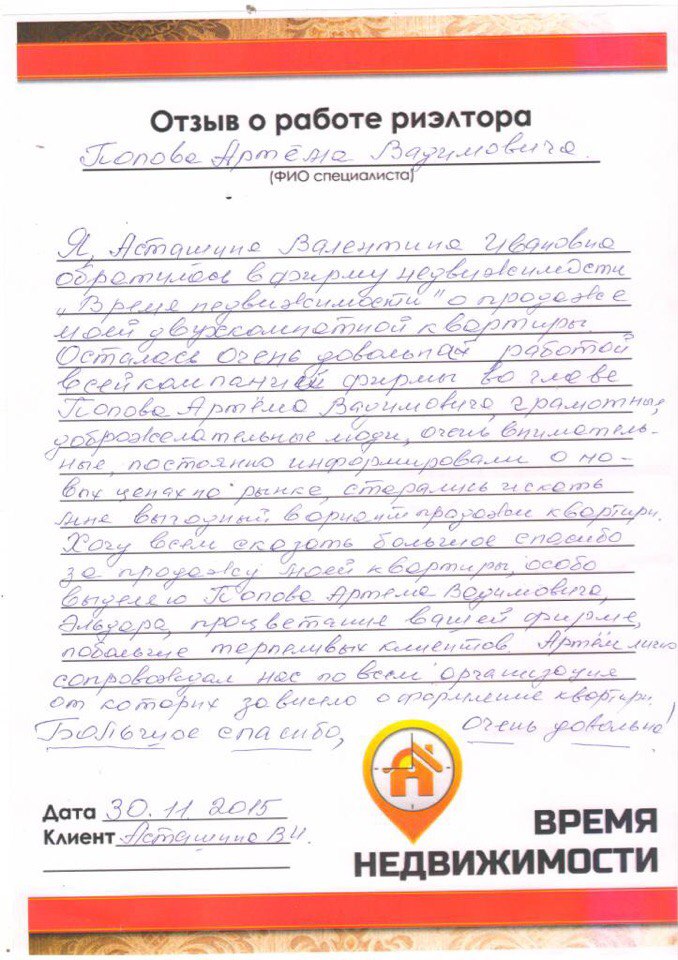 Отзыв о работе риэлтора
Попова Артёма Вадимовича.
(ФИО специалиста)
Я, Асташина Валентина Ивановна
обратилась в фирму недвижимости
„Время недвижимости" о продаже
моей двухкомнатной квартиры.
Осталась очень довольной работой
всей компанией фирмы во главе
Попова Артёма Вадимовича, грамотные,
доброжелательные люди, очень вниматель-
ные, постоянно информировали о но-
вых ценах по рынке, старались искать
мне выгодный вариант продажи квартири.
Хочу всем сказать большое спасибо
за продажу моей квартиры, особо
выделяю Попова Артёма Вадимовича,
Эльдара, процветание вашей фирме,
побольше терпеливых клиентов. Артём лично
сопровождал нас по всем организация
от которих зависело оформление квартири.
Большое спасибо, очень довольна!
Дата 30.11.2015
Клиент Асташина В.И.
ВРЕМЯ
НЕДВИЖИМОСТИ